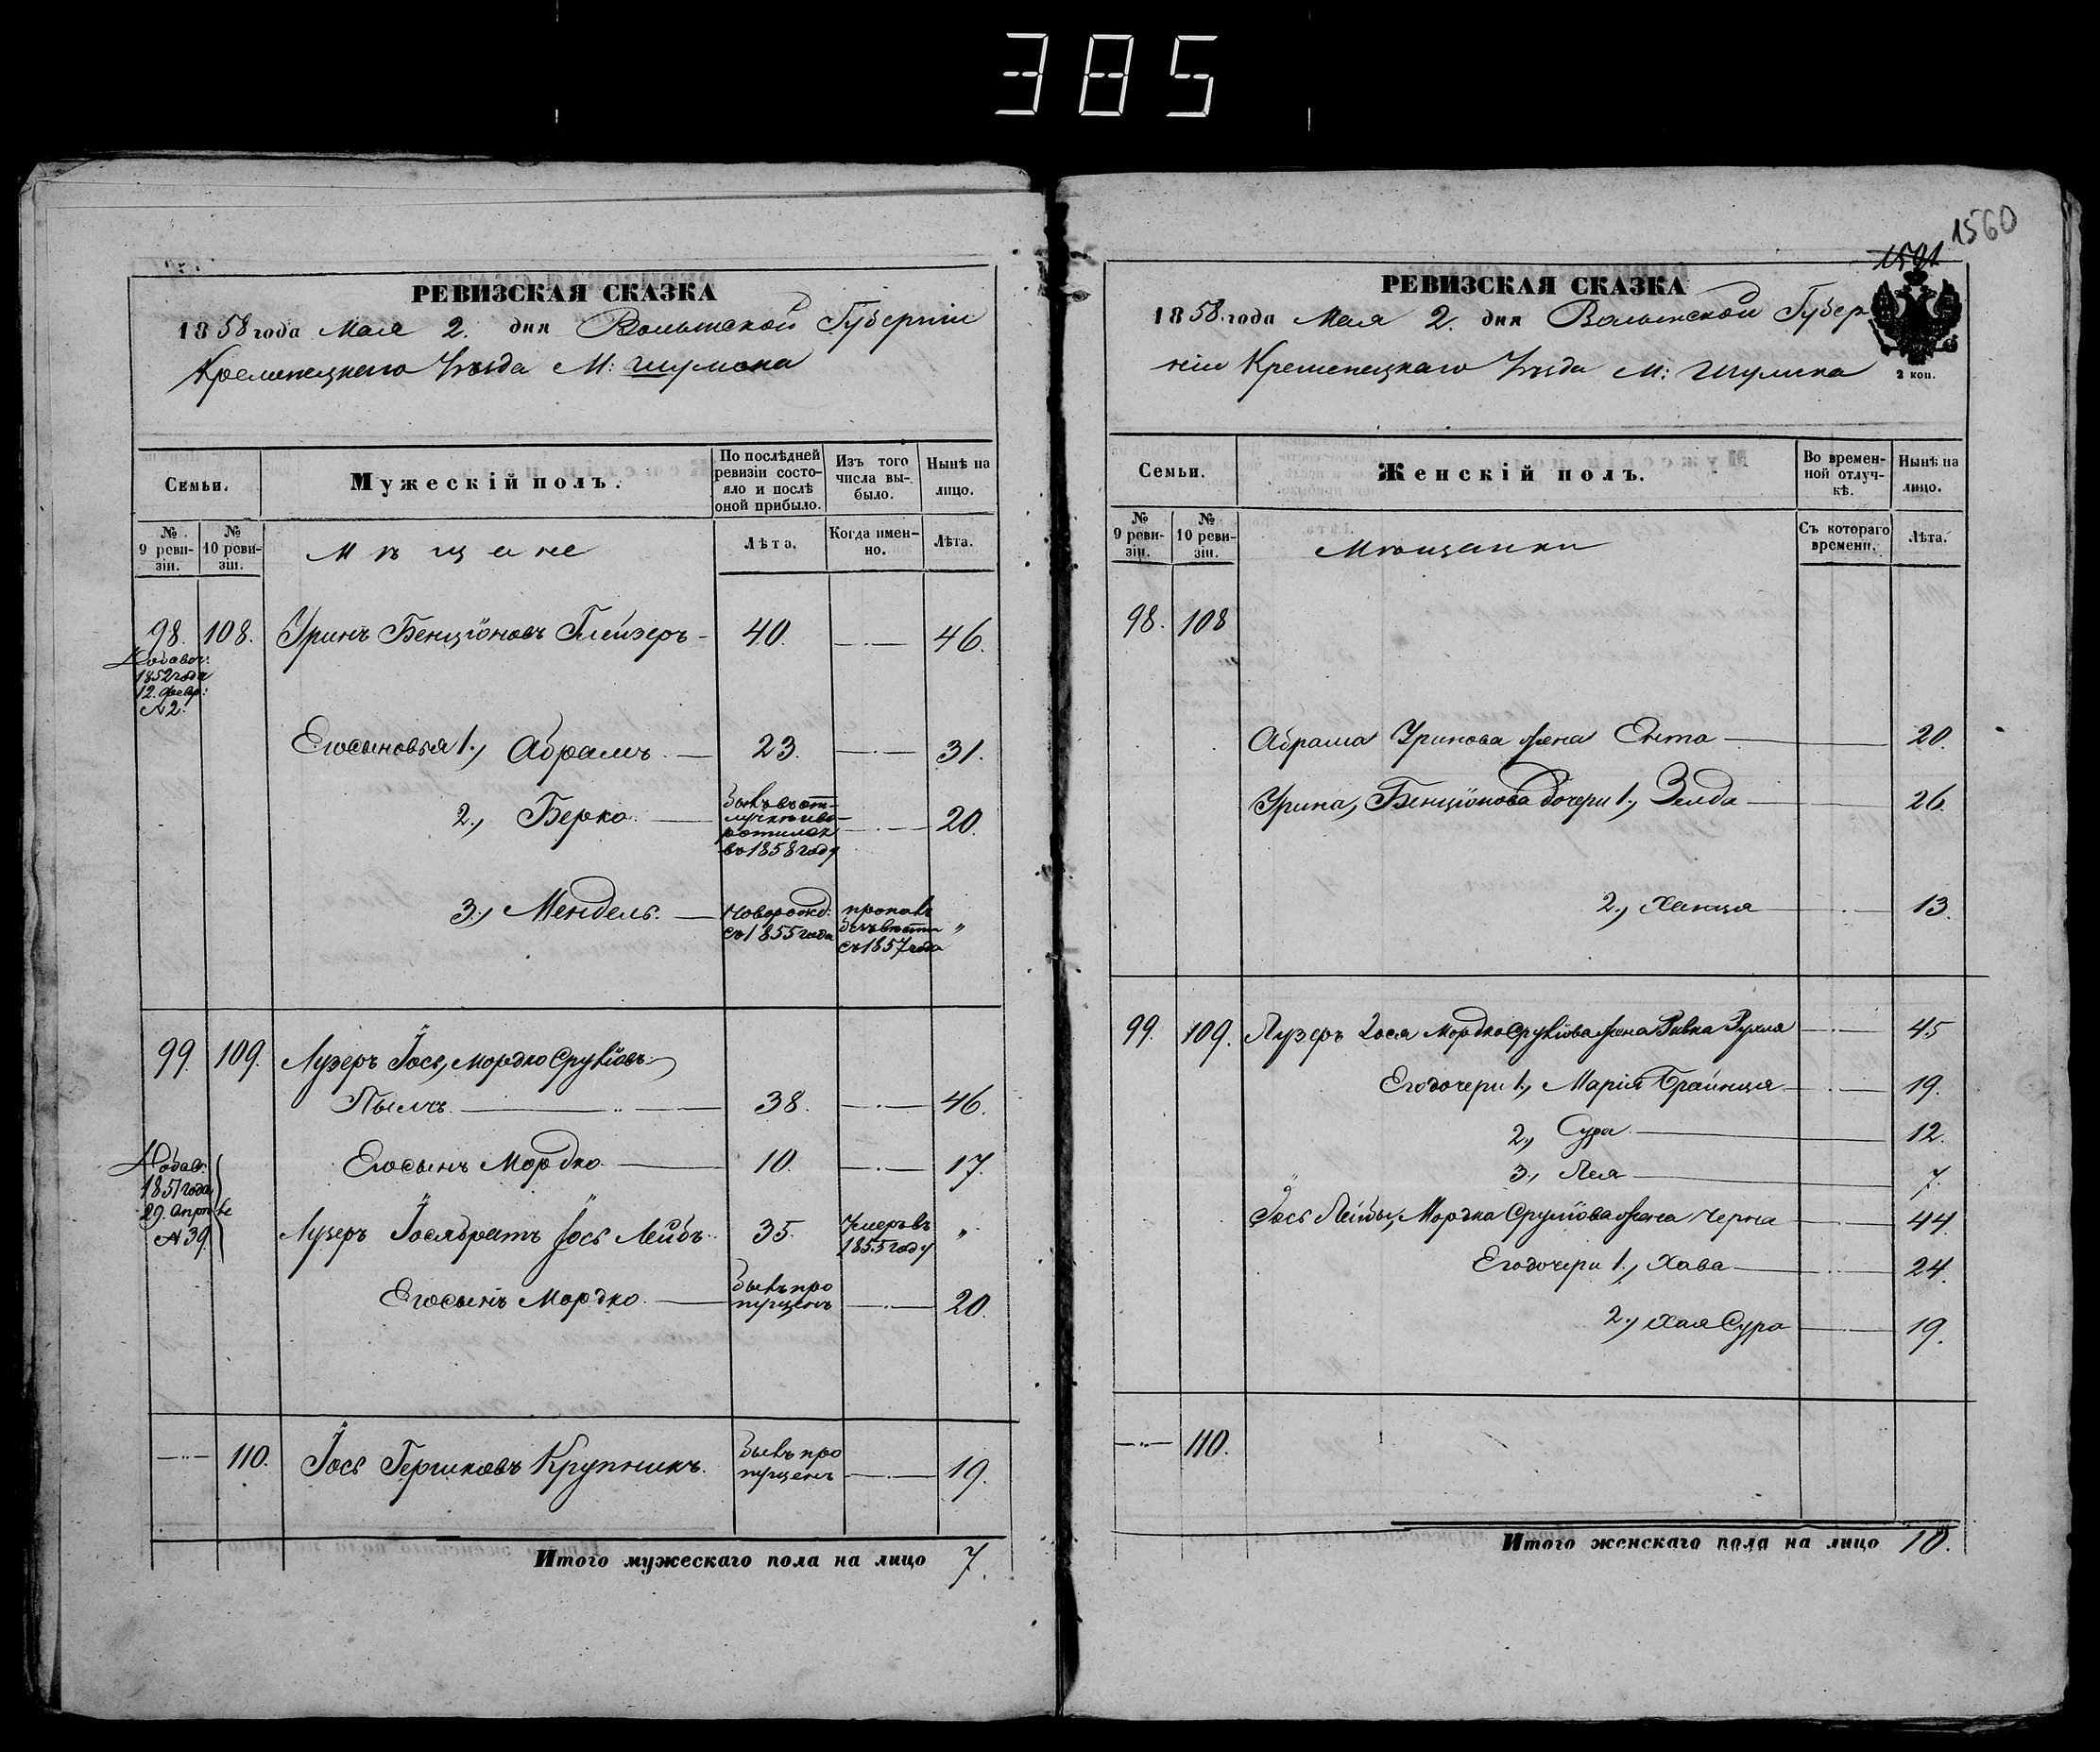 385
РЕВИЗСКАЯ СКАЗКА
1858 года Мая 2. дня Волынской Губерніи
Кременецкаго Уѣзда М: Шумска
Семьи.
Мужескій полъ.
По послѣдней ревизіи состо-
яло и послѣ
оной прибыло.
Изъ того
числа вы-
было.
Нынѣ на
лицо.
№
9 реви-
зіи.
№
10 реви-
зіи.
Мѣщане
Лѣта.
Когда имен-
но.
Лѣта.
98. 108. Уринъ Бенціоновъ Глейзеръ 40. 46.
Добавоч:
1852 года
12. Февр:
N 2.
Его сыновья 1., Абрамъ 23. 31.
2., Берко
20.
въ 1858 году
3., Мендель.
Новорожд:
съ 1855 года
съ 1857 года
„
99. 109. Лузеръ Іось, Мордко Сруліовъ
38. 46.
Его сынъ Мордко 10. 17.
Добав:
1851 года
29. Апрѣ
N 39.
Лузеръ Іося братъ Іось Лейбъ 35.
Умеръ въ
1855 году
„
Его сынъ Мордко
Былъ про
пущенъ
20.
110. Іось Гершковъ Крупникъ.
Былъ про
пущенъ
19.
Итого мужескаго пола на лицо 7.
1560
1591
РЕВИЗСКАЯ СКАЗКА
1858. года Мая 2. дня Волынской Губер
ніи Кременецкаго Уѣзда М: Шумска
2 коп.
Семьи.
Женскій полъ.
Во времен-
ной отлуч-
кѣ.
Нынѣ на
лицо.
№
9 реви-
зіи.
№
10 реви-
зіи.
Мѣщанки
Съ котораго
времени.
Лѣта.
98. 108
Абрама Уринова жена Ента 20.
Урина, Бенціонова дочери 1., Зелда 26.
2., Ханця 13.
99. 109. Лузеръ Іося Мордко Сруліова жена Ривка Рухля 45
Его дочери 1., Марія Брайнця 19.
2., Сура 12.
3., Лея 7.
Іось Лейбы, Мордка Сруліова жена Черна 44
Его дочери 1., Хава 24.
2., Хая Сура 19.
110.
Итого женскаго пола на лицо 10.